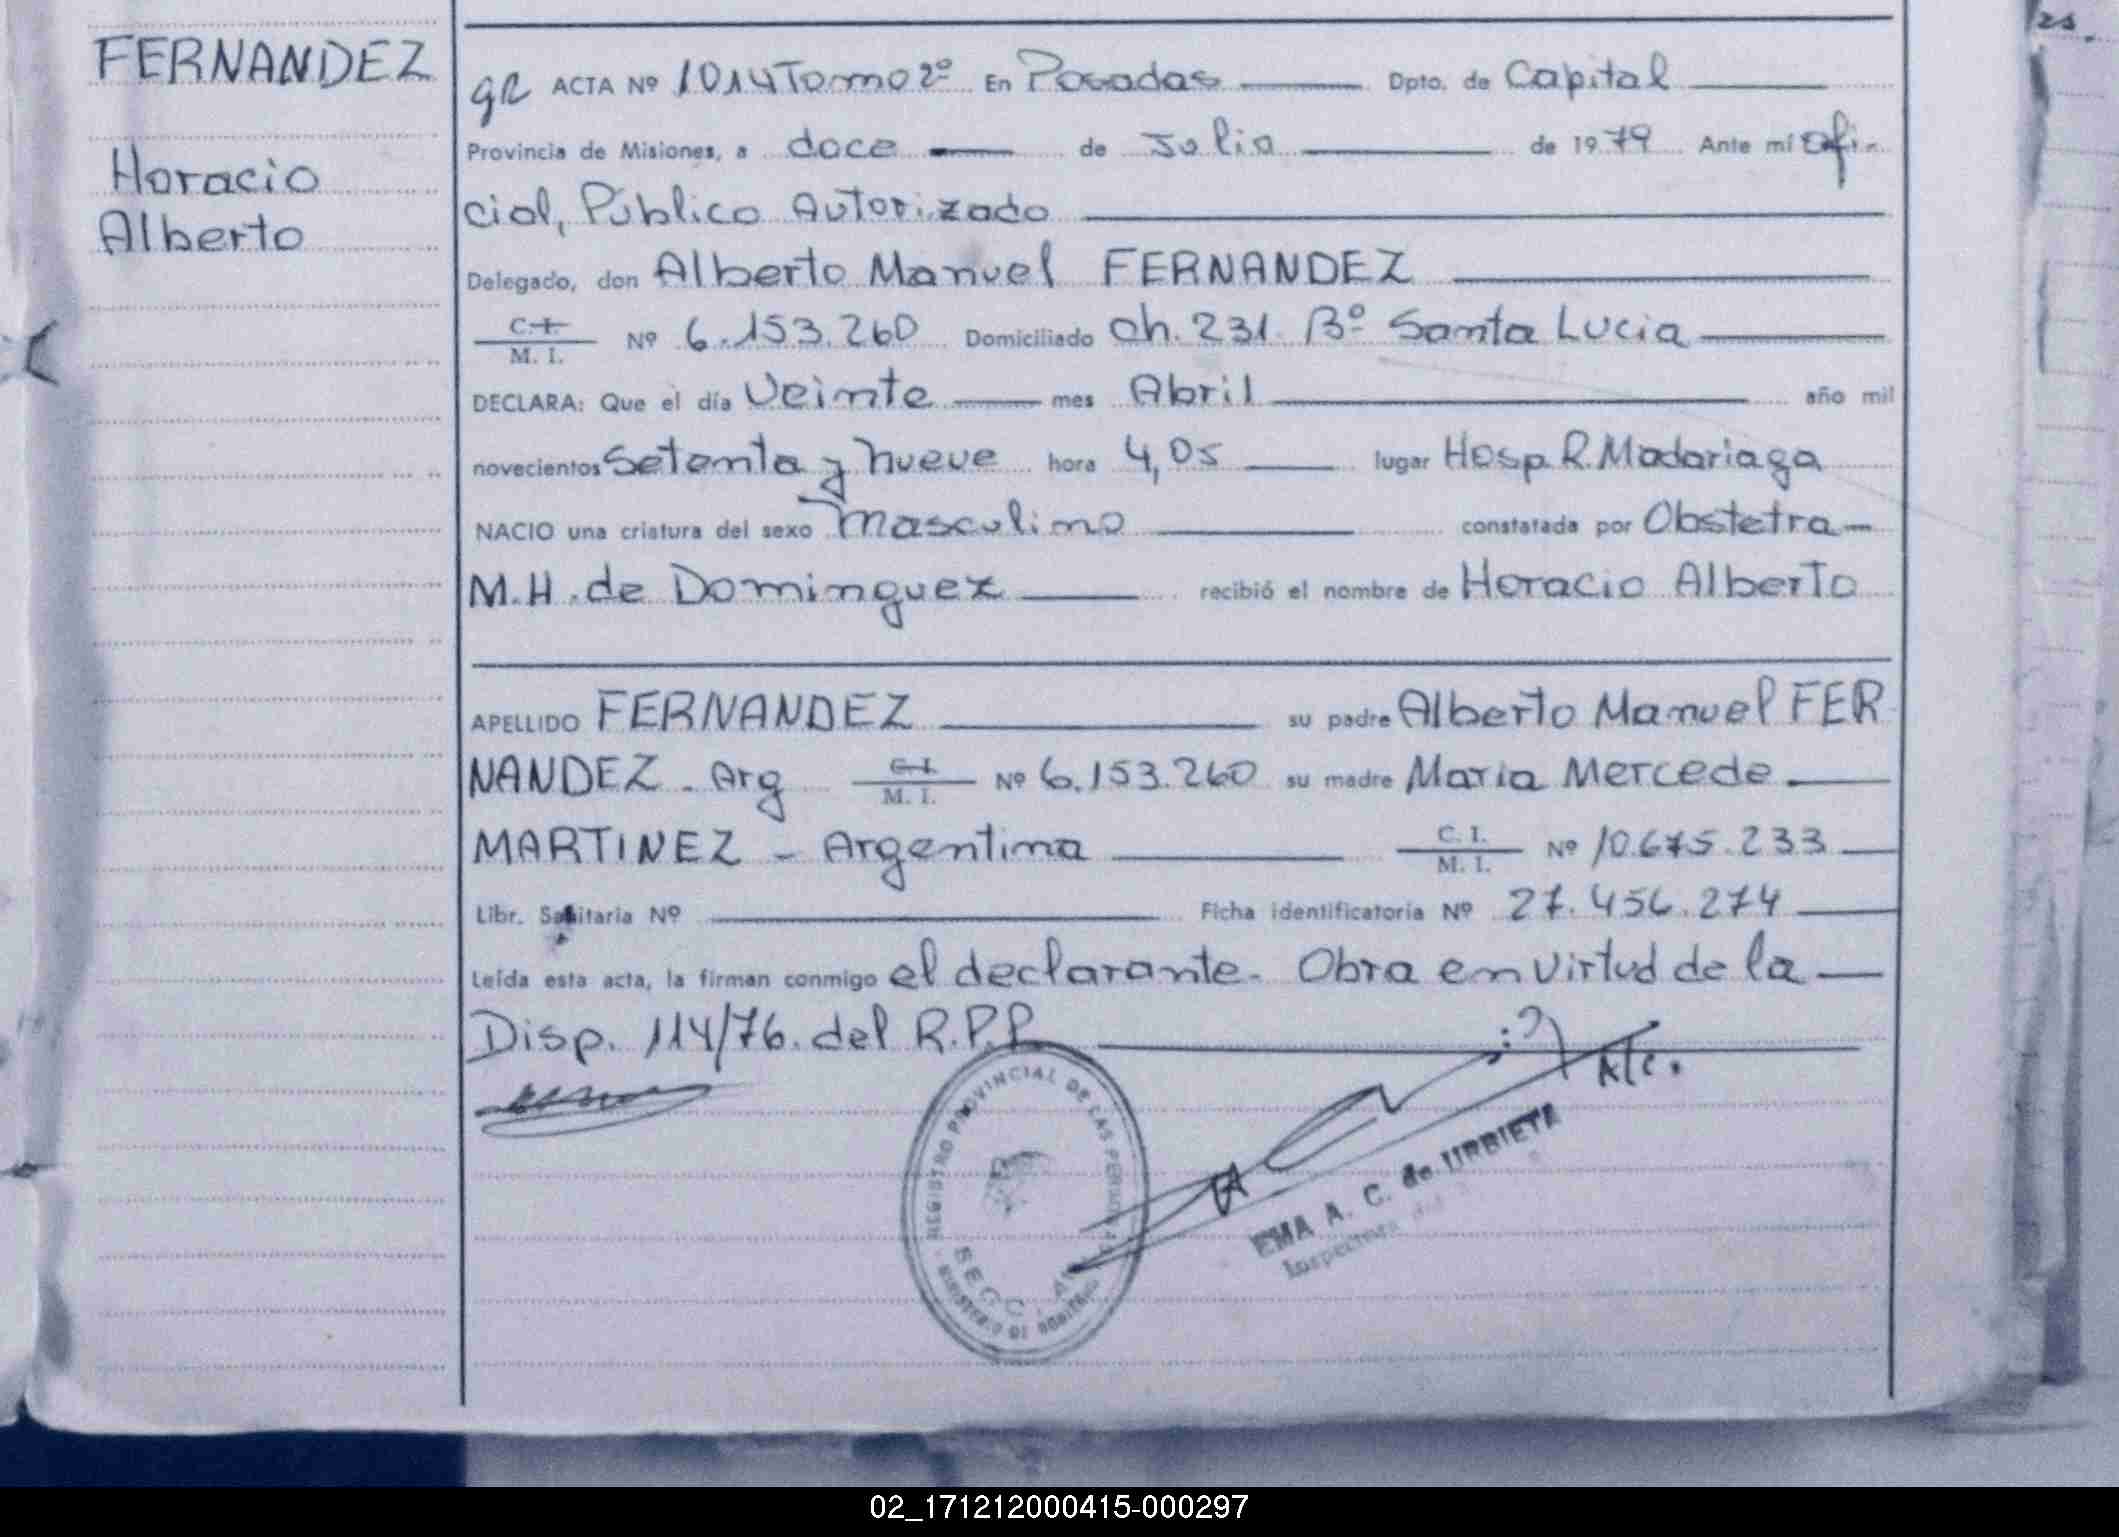 FERNANDEZ
Horacio
Alberto
ACTA Nº 1014 Tomo 2º En Posadas Dpto. de Capital
Provincia de Misiones, a doce de Julio de 1979 Ante mí Ofi-
cial, Público Autorizado
Delegado, don Alberto Manuel FERNANDEZ
C.I. M. I. Nº 6.153.260 Domiciliado Ch. 231. Bº Santa Lucia
DECLARA: Que el día Veinte mes Abril año mil
novecientos Setenta y nueve hora 4,05 lugar Hosp. R. Madariaga
NACIO una criatura del sexo masculino constatada por Obstetra
M.H. de Dominguez recibió el nombre de Horacio Alberto
APELLIDO FERNANDEZ su padre Alberto Manuel FER
NANDEZ - Arg C.I. M. I. Nº 6.153.260 su madre Maria Mercede
MARTINEZ - Argentina C. I. M. I. Nº 10.675.233
Libr. Sanitaria Nº Ficha identificatoria Nº 27.456.274
Leída esta acta, la firman conmigo el declarante. Obra en virtud de la
Disp. 114/76. del R.P.P.
REGISTRO PROVINCIAL DE LAS PERSONAS
EMA A. C. de URBIETA
Inspectora
02_171212000415-000297